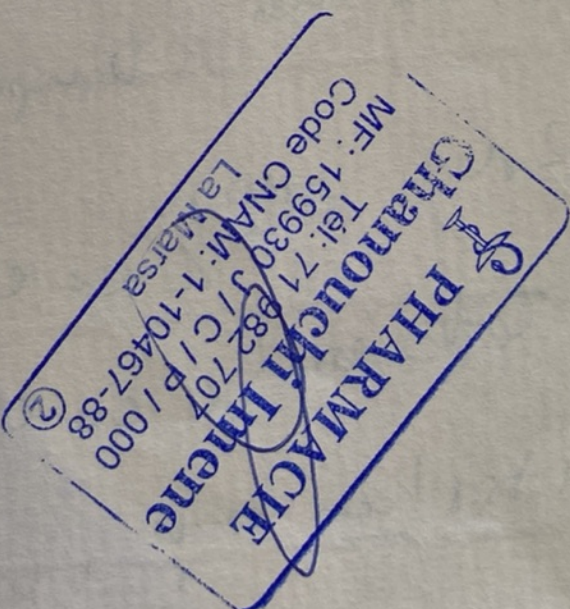 PHARMACIE
Ghanouchi Imene
Tél: 71 982 707
MF: 1599303 / C / P / 000
Code CNAM: 1-10467-88
La Marsa
2